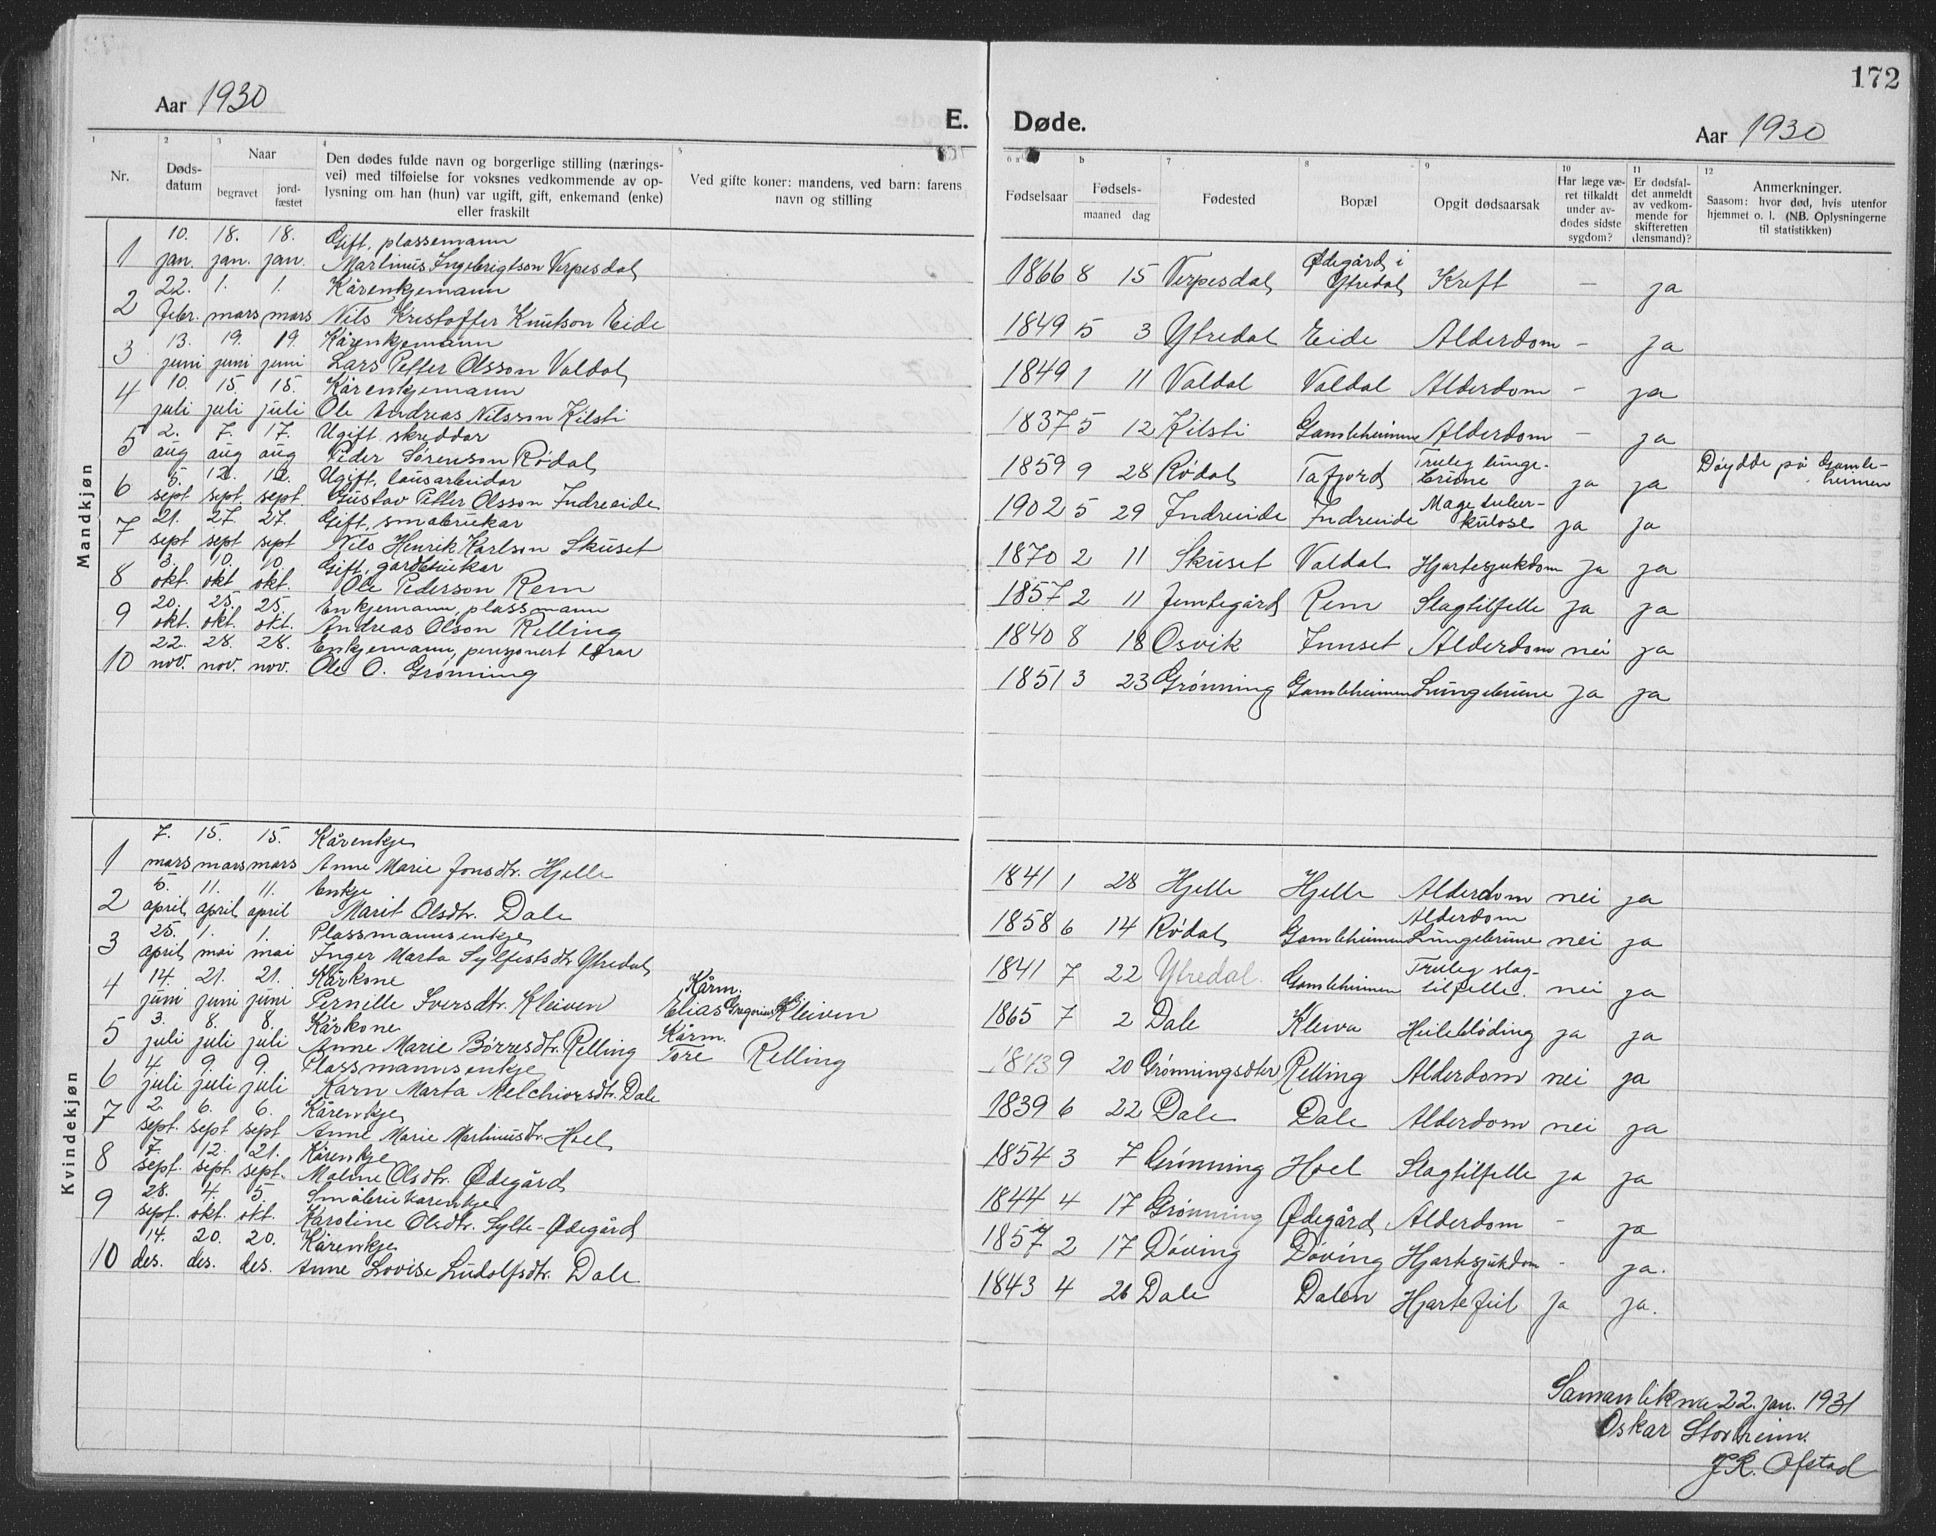 172
Aar 1930
E. Døde.
Aar 1930
1 Nr.
2 Døds-datum
3 Naar begravet jord-fæstet
4 Den dødes fulde navn og borgerlige stilling (nærings-
vei) med tilføielse for voksnes vedkommende av op-
lysning om han (hun) var ugift, gift, enkemand (enke)
eller fraskilt
5 Ved gifte koner: mandens, ved barn: farens
navn og stilling
6 a Fødselsaar
b Fødsels- maaned dag
7 Fødested
8 Bopæl
9 Opgit dødsaarsak
10 Har læge væ-
ret tilkaldt
under av-
dødes sidste
sygdom?
11 Er dødsfal-
det anmeldt
av vedkom-
mende for
skifteretten
(lensmand)?
12 Anmerkninger.
Saasom: hvor død, hvis utenfor
hjemmet o. l. (NB. Oplysningerne
til statistikken)
Mandkjøn
10. 18. 18. Gift, plassemann
1 jan. jan. jan. Martinus Ingebrigtson Verpesdal 1866 8 15 Verpesdal Ødegård i Ytredal Kreft - ja
22. 1. 1. Kårenkjemann
2 febr. mars mars Nils Kristoffer Knutson Eide 1849 5 3 Ytredal Eide Alderdom - ja
13. 19. 19. Kårenkjemann
3 juni juni juni Lars Petter Olsson Valdal 1849 1 11 Valdal Valdal Alderdom - ja
10. 15 15. Kårenkjemann
4 juli juli juli Ole Andreas Nilsson Kilsti 1837 5 12 Kilsti Gamleheimen Alderdom - ja
2. 7. 17. Ugift, skreddar
5 aug aug aug Peder Sørenson Rødal 1859 9 28 Rødal Tafjord Truleg lunge- ja ja Døydde på Gamle-heimen
5. 12. 12. Ugift, lausarbeidar
6 sept. sept. sept. Gustav Petter Olsson Indreeide 1902 5 29 Indreeide Indreeide Mage tuber-kulose ja ja
21. 27. 27. Gift, småbrukar
7 sept sept sept Nils Henrik Karlson Skuset 1870 2 11 Skuset Valdal Hjartesjukdom ja ja
3. 10. 10. Gift, gardbrukar
8 okt. okt okt. Ole Pederson Rem 1857 2 11 Jemtegård Rem Slagtilfelle ja ja
20. 25. 25. Enkjemann, plassmann
9 okt. okt. okt. Andreas Olson Relling 1840 8 18 Osvik Innset Alderdom nei ja
22. 28. 28. Enkjemann, pensjonert lærar
10 nov. nov. nov. Ole O. Grønning 1851 3 23 Grønning Gamleheimen Lungebrune ja ja
Kvindekjøn
7. 15. 15. Kårenkje
1 mars mars mars Anne Marie Jonsdtr. Hjelle 1841 1 28 Hjelle Hjelle Alderdom nei ja
5. 11. 11. Enkje
2 april april april Marit Olsdtr. Dale 1858 6 14 Rødal Gamleheimen Alderdom Lungebrune nei ja
25. 1. 1. Plassmannsenkje
3 april mai mai Inger Marta Sylfestsdtr Ytredal 1841 7 22 Ytredal Gamleheimen Truleg slag-tilfelle. nei ja
14. 21. 21. Kårkone Kårm.
4 juni juni juni Pernille Iversdtr. Kleiven Elias Gregorius Kleiven 1865 7 2 Dale Kleiva Heilebløding ja ja
3. 8. 8. Kårkone Kårm.
5 juli juli juli Anne Marie Børresdtr. Relling Tore Relling 1843 9 20 Grønningsæter Relling Alderdom nei ja
4. 9. 9. Plassmannsenkje
6 juli juli juli Karn Marta Melchiorsdtr. Dale 1839 6 22 Dale Dale Alderdom nei ja
2. 6. 6. Kårenkje
7 sept. sept sept Anne Marie Martinusdtr. Hoel 1854 3 7 Grønning Hoel Slagtilfelle ja ja
7. 12. 21. Kårenkje
8 sept. sept. sept. Maline Olsdtr. Ødegård 1844 4 17 Grønning Ødegård Alderdom - ja
28. 4. 5. Småbrukarenkje
9 sept. okt. okt. Karoline Olsdtr. Sylte-Ødegård 1857 2 17 Døving Døving Hjartesjukdom - ja.
14. 20. 20. Kårenkje
10 des. des. des. Anne Lovise Ludolfsdtr. Dale 1843 4 26 Dale Dalen Hjartefeil ja ja.
Samanlikna 22. jan. 1931
Oskar Storheim.
J.K. Ofstad